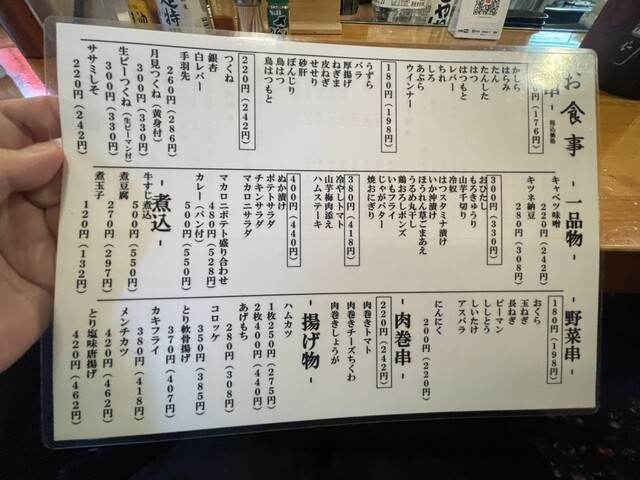 お食事
串
税込価格
(176円)
かしら
はらみ
たん
たんした
はつ
はつもと
レバー
ちれ
しろ
あぶら
ウインナー
180円(198円)
うずら
バラ
厚揚げ
ねぎま
皮ねぎ
せせり
砂肝
ぼんじり
鳥はつ
鳥はつもと
220円(242円)
つくね
銀杏
白レバー
手羽先
260円(286円)
月見つくね(黄身付)
300円(330円)
生ピーつくね(生ピーマン付)
300円(330円)
ササミしそ
220円(242円)
- 一品物 -
キャベツ味噌
220円(242円)
キツネ納豆
280円(308円)
300円(330円)
おひたし
もろきゅうり
山芋千切り
冷奴
はつスタミナ漬け
いか沖漬け
ほうれん草ごまあえ
うるめ丸干し
鶏おろしポンズ
いもフライ
じゃがバター
焼おにぎり
380円(418円)
冷やしトマト
山芋梅肉添え
ハムステーキ
400円(440円)
ぬか漬け
ポテトサラダ
チキンサラダ
マカロニサラダ
マカロニポテト盛り合わせ
480円(528円)
カレー(パン付)
500円(550円)
- 煮込 -
牛すじ煮込
500円(550円)
煮豆腐
270円(297円)
煮玉子
120円(132円)
- 野菜串 -
180円(198円)
おくら
玉ねぎ
長ねぎ
ピーマン
ししとう
しいたけ
アスパラ
にんにく
200円(220円)
- 肉巻串 -
220円(242円)
肉巻きトマト
肉巻きチーズちくわ
肉巻きしょうが
- 揚げ物 -
ハムカツ
1枚250円(275円)
2枚400円(440円)
あげもち
280円(308円)
コロッケ
350円(385円)
とり軟骨揚げ
370円(407円)
カキフライ
380円(418円)
メンチカツ
420円(462円)
とり塩味唐揚げ
420円(462円)